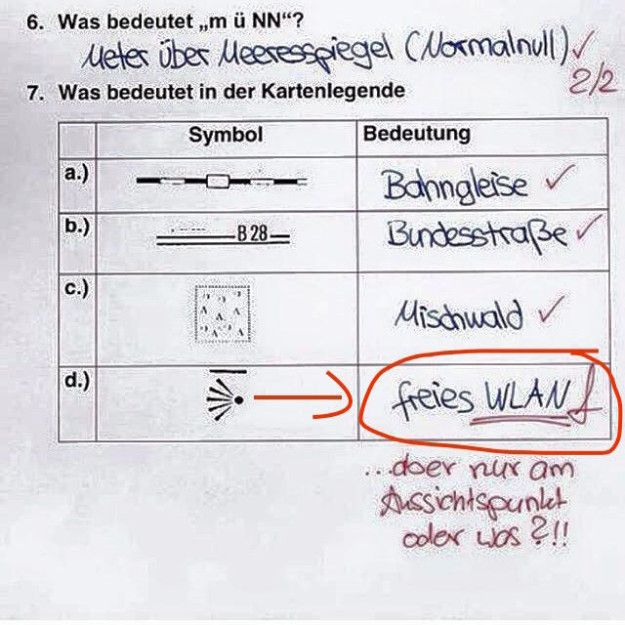 6. Was bedeutet „m ü NN“?
Meter über Meeresspiegel (Normalnull) ✓
2/2
7. Was bedeutet in der Kartenlegende
Symbol Bedeutung
a.) Bahngleise ✓
b.) B 28 Bundesstraße ✓
c.) Mischwald ✓
d.) freies WLAN f
...aber nur am
Aussichtspunkt
oder was?!!